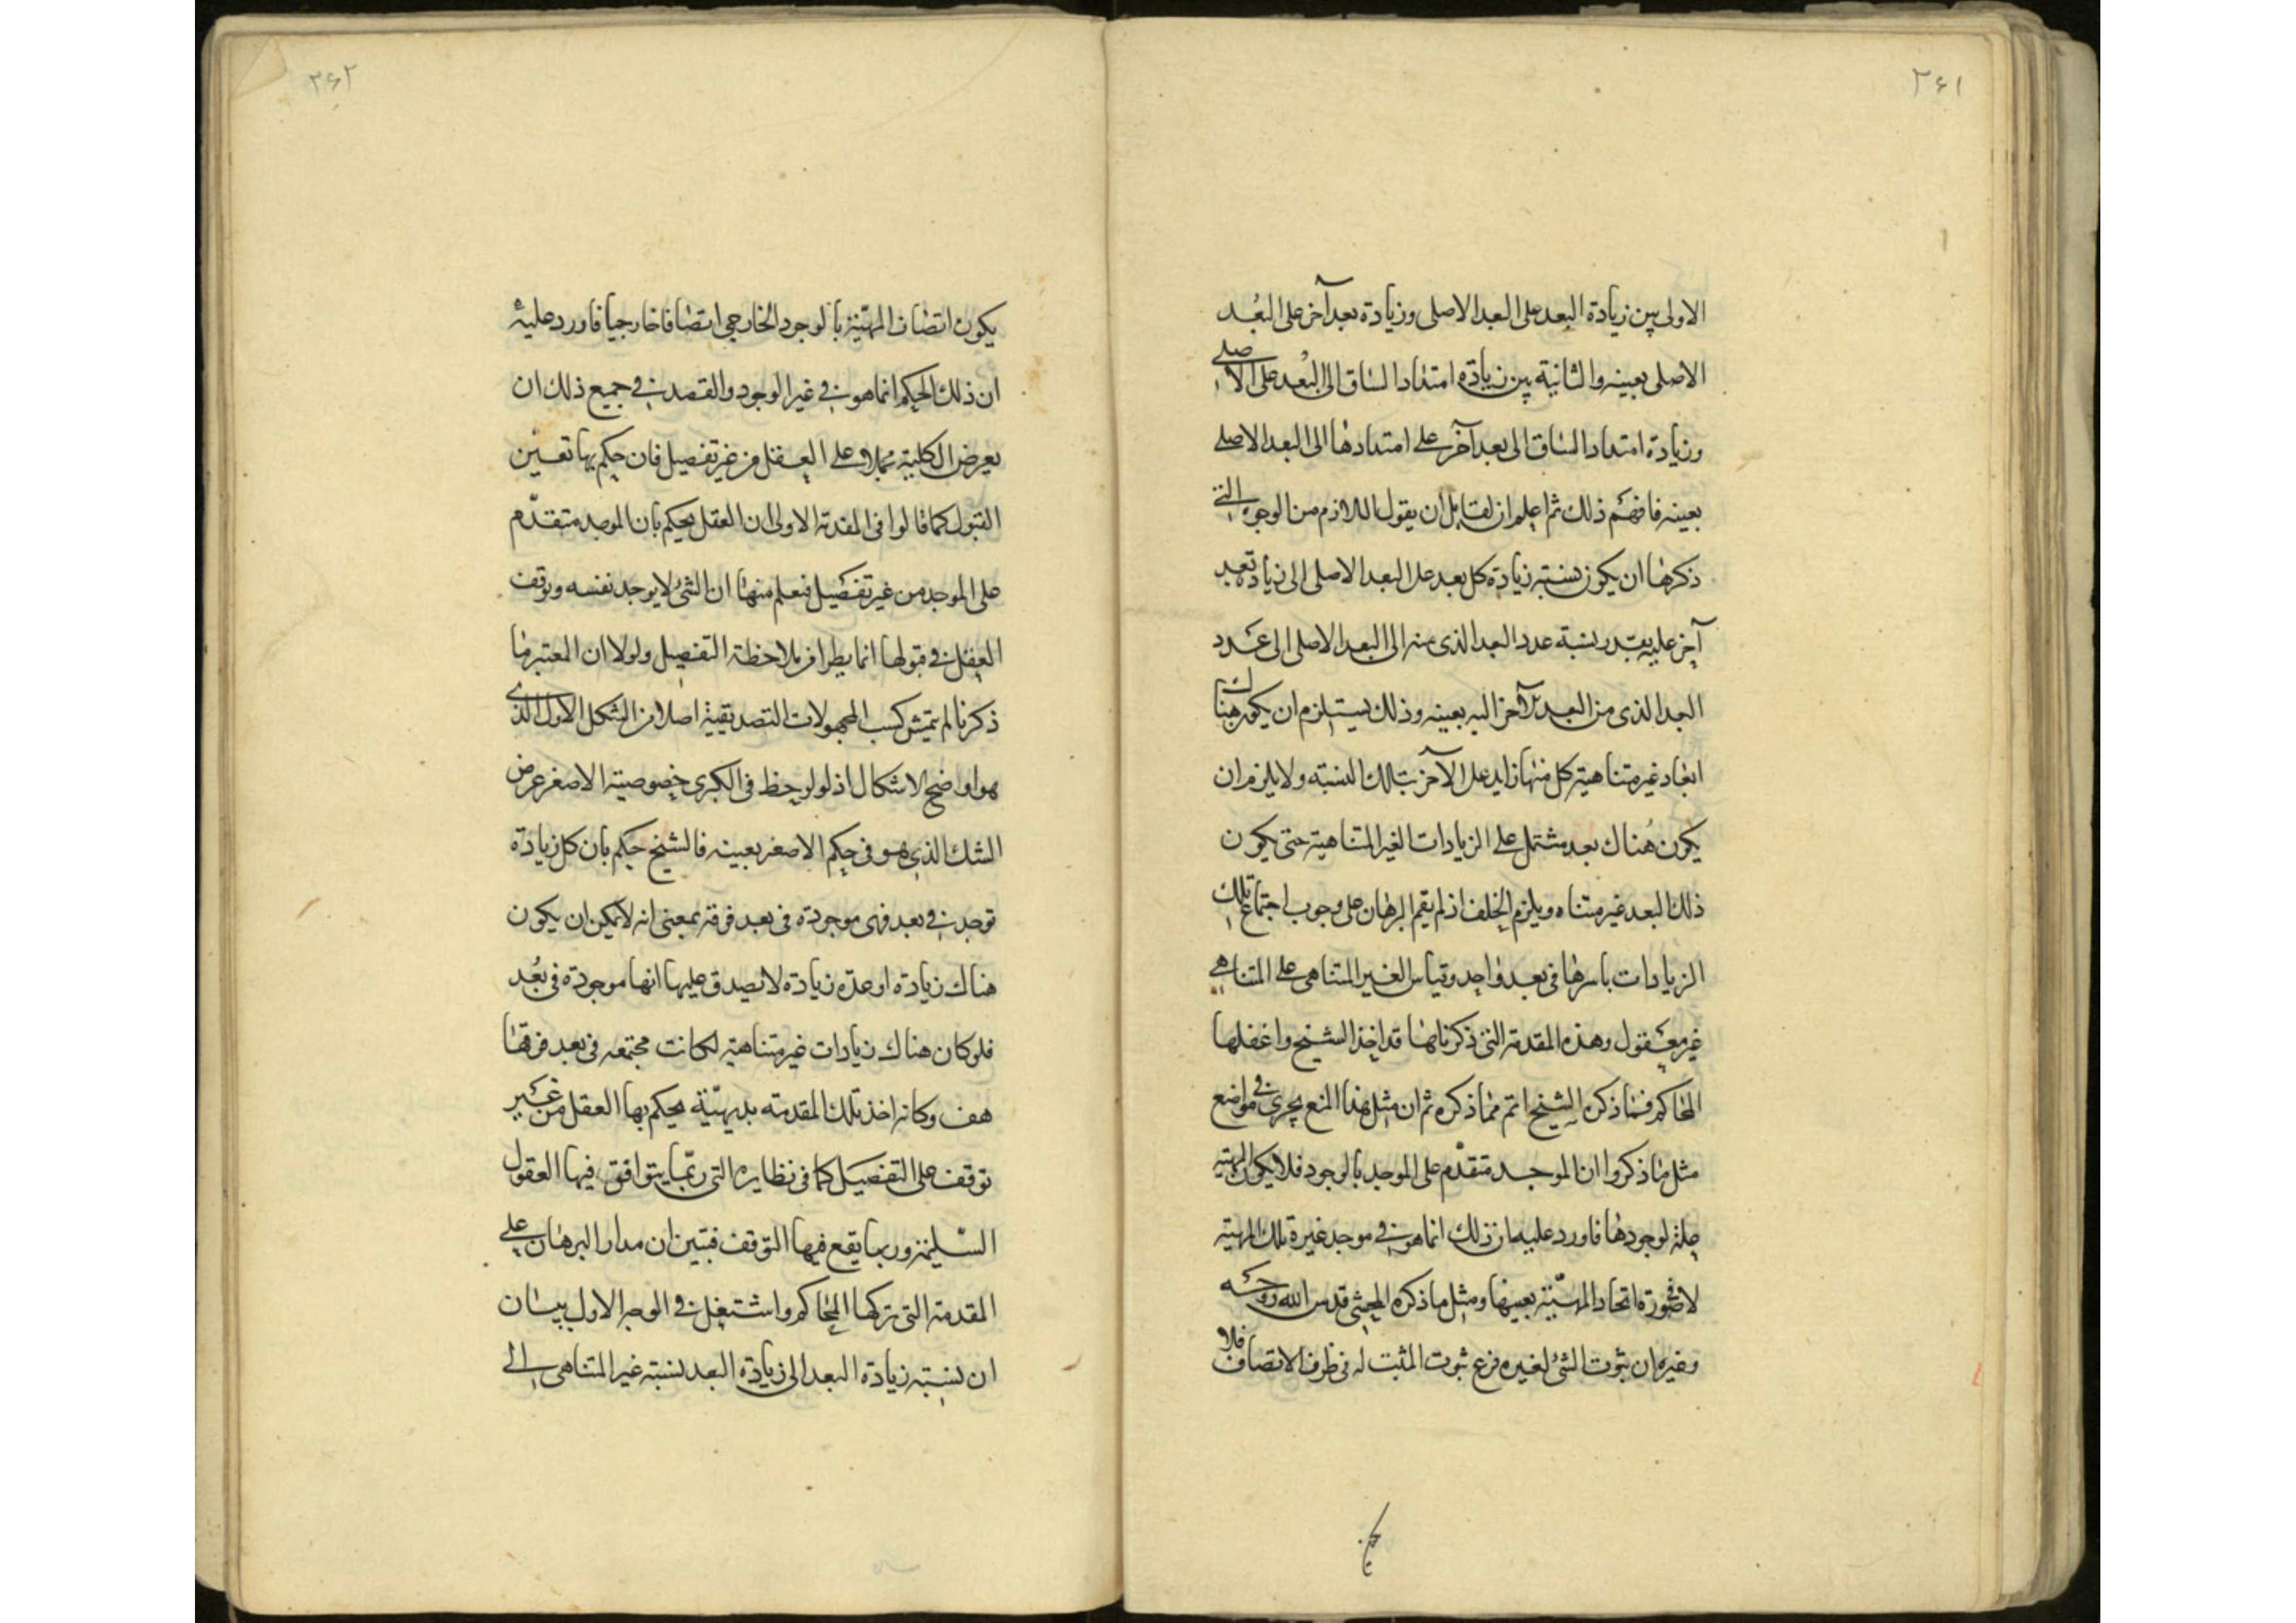 ٢٦١
الاولى بين زيادة البعد على البعد الاصلى وزيادة بعد آخر على البُعد
الاصلى بعينه والثانية بين زيادة امتداد الساق الى البُعد على الاصلى
وزيادة امتداد الساق الى بعد آخر على امتدادها الى البعد الاصلى
بعينه فافهم ذلك ثم اعلم ان لقايل ان يقول اللازم من الوجوه التى
ذكرها ان يكون نسبة زيادة كل بعد على البعد الاصلى الى زيادة بعد
آخر عليه بقدر نسبة عدد البعد الذى منه الى البعد الاصلى الى عدد
البعد الذى من البعد الآخر اليه بعينه وذلك يستلزم ان يكون هناك
ابعاد غير متناهية كل منها زايد على الآخر بتلك النسبة ولا يلزم ان
يكون هُناك بعد مشتمل على الزيادات الغير المتناهية حتى يكون
ذلك البعد غير متناه ويلزم الخلف اذ لم يقم البرهان على وجوب اجتماع تلك
الزيادات باسرها فى بعد واحد وقياس الغير المتناهى على المتناهى
غير معقول وهذه المقدمة التى ذكرناها قد اخذ الشيخ واغفلها
المحاكم فما ذكره الشيخ اتم مما ذكره ثم ان مثل هذا المنع يجرى فى مواضع
مثل ما ذكروا ان الموجد متقدّم على الموجد بالوجود فلا يكون المهية
علة لوجودها فاورد عليه ان ذلك انما هو فى موجد غيره تلك المهية
لا فى صورة اتحاد المهيّة بعينها ومثل ما ذكره المحشى قدس الله روحه
وغيره ان ثبوت الشئ لغيره فرع ثبوت المثبت له فى ظرف الاتصاف فلا
٢٦٢
يكون اتصاف المهيّة بالوجود الخارجى اتصافا خارجيا فاورد عليه
ان ذلك الحكم انما هو فى غير الوجود والقصد فى جميع ذلك ان
يعرض الكلية مجملا على العقل من غير تفصيل فان حكم بها تعيّن
القبول كما قالوا فى المقدمة الاولى ان العقل يحكم بان الموجد متقدّم
على الموجد من غير تفصيل فنعلم منها ان الشئ لا يوجد نفسه وتوقف
العقل فى قبولها انما يطرا من ملاحظة التفصيل ولولا ان المعتبر ما
ذكرنا لم يتمش كسب المجهولات التصديقية اصلا من الشكل الاول الذى
هو اوضح الاشكال اذ لو لوحظ فى الكبرى خصوصية الاصغر عرض
الشك الذى هو فى حكم الاصغر بعينه فالشيخ حكم بان كل زيادة
توجد فى بعد فهى موجودة فى بعد فوقه بمعنى انه لا يمكن ان يكون
هناك زيادة او عدة زيادة لا يصدق عليها انها موجودة فى بُعد
فلو كان هناك زيادات غير متناهية لكانت مجتمعه فى بعد فوقها
هف وكانه اخذ تلك المقدمة بديهيّة يحكم بها العقل من غير
توقف على التفصيل كما فى نظايره التى ربّما يتوافق فيها العقول
السّليمة وربما يقع فيها التوقف فتبين ان مدار البرهان على
المقدمة التى تركها المحاكم واشتغل فى الوجه الاول ببيان
ان نسبة زيادة البعد الى زيادة البعد نسبة غير المتناهى الى